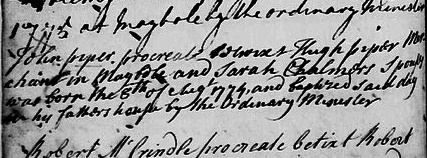 1775 at Maybole by the ordinary Minister
John piper, procreate betwixt Hugh piper Mer
chant in Maybole and Sarah Chalmers Spouses
was born the 8th of Augt 1774, and baptized said day
in his fathers house by the Ordinary Minister
Robert McCrindle procreate betixt Robert